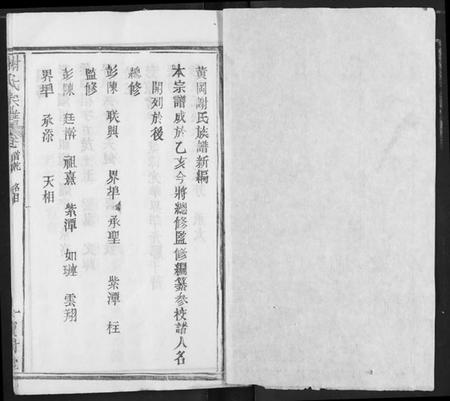 黄岡謝氏族譜新編
本宗譜成於乙亥今將總修監修編纂參校諸人名
開列於後
總修
彭陳 联興 界埠 承聖 紫潭 柱
監修
彭陳 廷 祖熹 紫潭 如璉 雲翔
界埠 承漆 天相
謝氏宗譜 卷首
名目